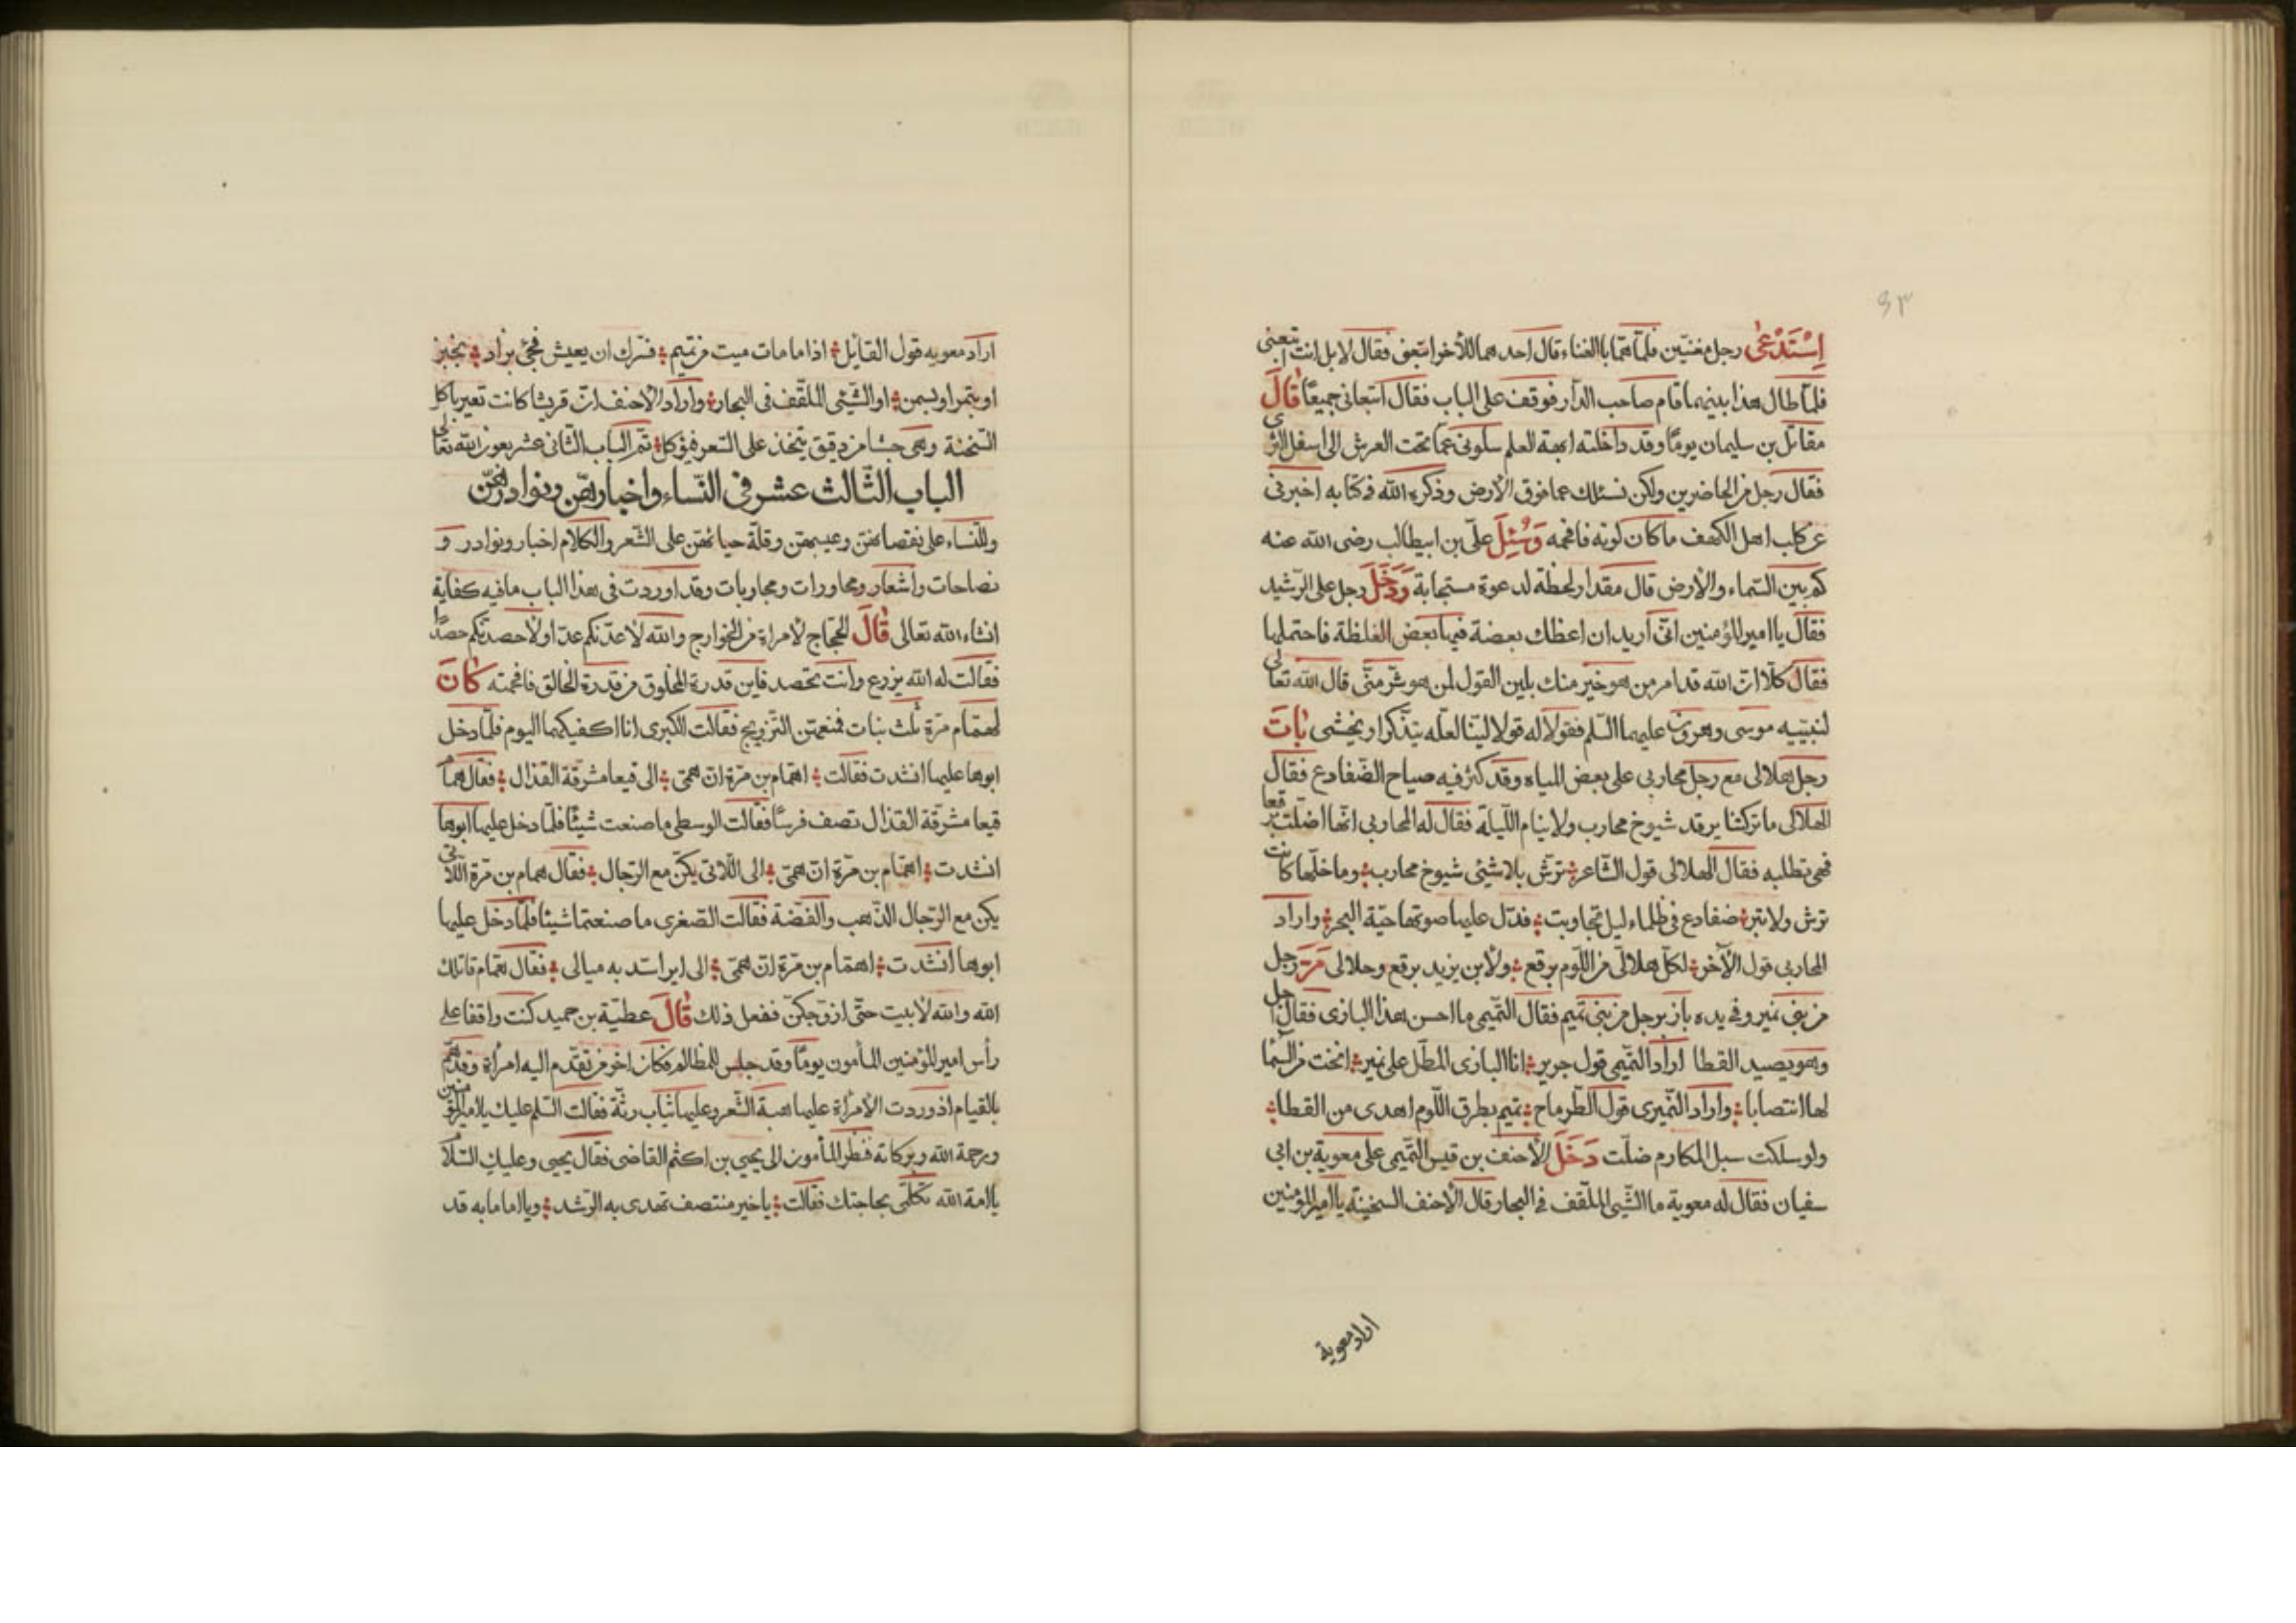 ٩٣
اِسْتَدْعٰى رجل مغنيّين فلمّا همّا بالغناء قال احدهما للآخر اتبعنى فقال لا بل انت اتبعنى
فلمّا طال هذا بينهما قام صاحب الدّار فوقف على الباب فقال اتبعانى جميعًا قَالَ
مقاتل بن سليمان يومًا وقد داخلته ابهة العلم سلونى عمّا تحت العرش الى اسفل الثرى
فقال رجل من الحاضرين ولكن نسئلك عما فوق الارض وذكره الله فى كتابه اخبرنى
عن كلب اهل الكهف ما كان لونه فافحمه وَسُئِلَ علىّ بن ابيطالب رضى الله عنه
كم بين السّماء والارض قال مقدار لحظة لدعوة مستجابة وَدَخَلَ رجل على الرّشيد
فقال يا امير المؤمنين انّى اريد ان اعظك بعضة فيها بعض الغلظة فاحتملها
فقال كلّا انّ الله قد امر من هو خير منك بلين القول لمن هو شرّ منّى قال الله تعالى
لنبيّيه موسى وهرون عليهما السّلم فقولا له قولا ليّنا لعلّه يتذّكر او يخشى بَاتَ
رجل هلالى مع رجل محاربى على بعض المياه وقد كثر فيه صياح الضّفادع فقال
الهلالى ما تركتنا يرقد شيوخ محارب ولا ينام اللّيلة فقال له المحاربى انّها اضلّت برقعا
فهى تطلبه فقال الهلالى قول الشّاعر ترشّ بلا شيئى شيوخ محارب وما خلّها كانت
ترش ولا تبر ضفادع فى ظلماء ليل تجاوبت فدّل عليها صوتها حيّة البحر واراد
المحاربى قول الآخر لكلّ هلالىّ من اللّوم برقع ولابن يزيد برقع وحلالى مَرَّ رجل
من بنى نمير وفى يده باز برجل من بنى تميم فقال التّميمى ما احسن هذا البازى فقال اجل
وهو يصيد القطا اراد التّميمى قول جرير انا البازى المطلّ على نمير اتحت من السّما
لها انتصابا واراد النّميرى قول الطّرماح تميم بطرق اللّوم اهدى من القطا
ولو سلكت سبل المكارم ضلّت دَخَلَ الأحنف بن قيس التّميمى على معوية بن ابى
سفيان فقال له معوية ما الشّيئى الملفّف فى البجار قال الاحنف السخينة يا امير المؤمنين
اراد معوية
اراد معويه قول القايل اذا ما مات ميت من تميم فسّرك ان يعيش فجئ بزاد بخبز
او بتمر او بسمن او الشّيئى الملفّف فى البجار واراد الاحنف انّ قريشا كانت تعير باكل
السّخنة وهى حشا من دقيق يتخذ على السّعر فيؤكل تمّ الباب الثّانى عشر بعون الله تعالى
الباب الثّالث عشر فى النّساء واخبارهنّ ونوادرهنّ
وللنّساء على نقصانهنّ وعيبهنّ وقلّة حيائهنّ على الشّعر والكلام اخبار ونوادر و
نصاحات واشعار ومحاورات ومجاوبات وقد اوردت فى هذا الباب ما فيه كفاية
انشاء الله تعالى قَالَ الحجّاج لأمراة من الخوارج والله لاعدّنكم عدّا ولأحصدنّكم حصدًا
فقالت له الله يزرع وانت تحصد فاين قدرة المخلوق من قدرة الخالق فافحمته كَانَ
لهمّام مرّة ثلث بنات فمنعهنّ التّزويج فقالت الكبرى انا اكفيكما اليوم فلمّا دخل
ابوها عليها انشدت فقالت اهمّام بن مرّة انّ همّى الى قيعا مشرقة القذال فقال همّام
قيعا مشرقة القذال تصف فرسًا فقالت الوسطى ما صنعت شيئًا فلمّا دخل عليها ابوها
انشدت اهمّام بن مرّة انّ همّى الى اللّاتى يكنّ مع الرّجال فقال همام بن مرّة اللّاتى
يكن مع الرّجال الذّهب والفضّة فقالت الصّغرى ما صنعتما شيئا فلمّا دخل عليها
ابوها انشدت اهمّام بن مرّة انّ همّى الى اير اسّد به مبالى فقال همّام قاتلك
الله والله لا بيت حتّى ازوّجكنّ ففعل ذلك قَالَ عطيّة بن حميد كنت واقفا على
رأس امير المؤمنين المأمون يومًا وقد جلس للمظالم فكان اخر من تقدّم اليه امرأة وقد همّ
بالقيام اذ وردت الأمرأة عليها هبة الشّعر وعليها ثياب رثّة فقالت السّلم عليك يا امير المؤمنين
ورحمة الله وبركاته فنظر المأمون الى يحيى بن اكثم القاضى فقال يحيى وعليك السّلام
يا امة الله تكلّمى بحاجتك فقالت يا خير منتصف تهدى به الرّشد ويا اماما به قد